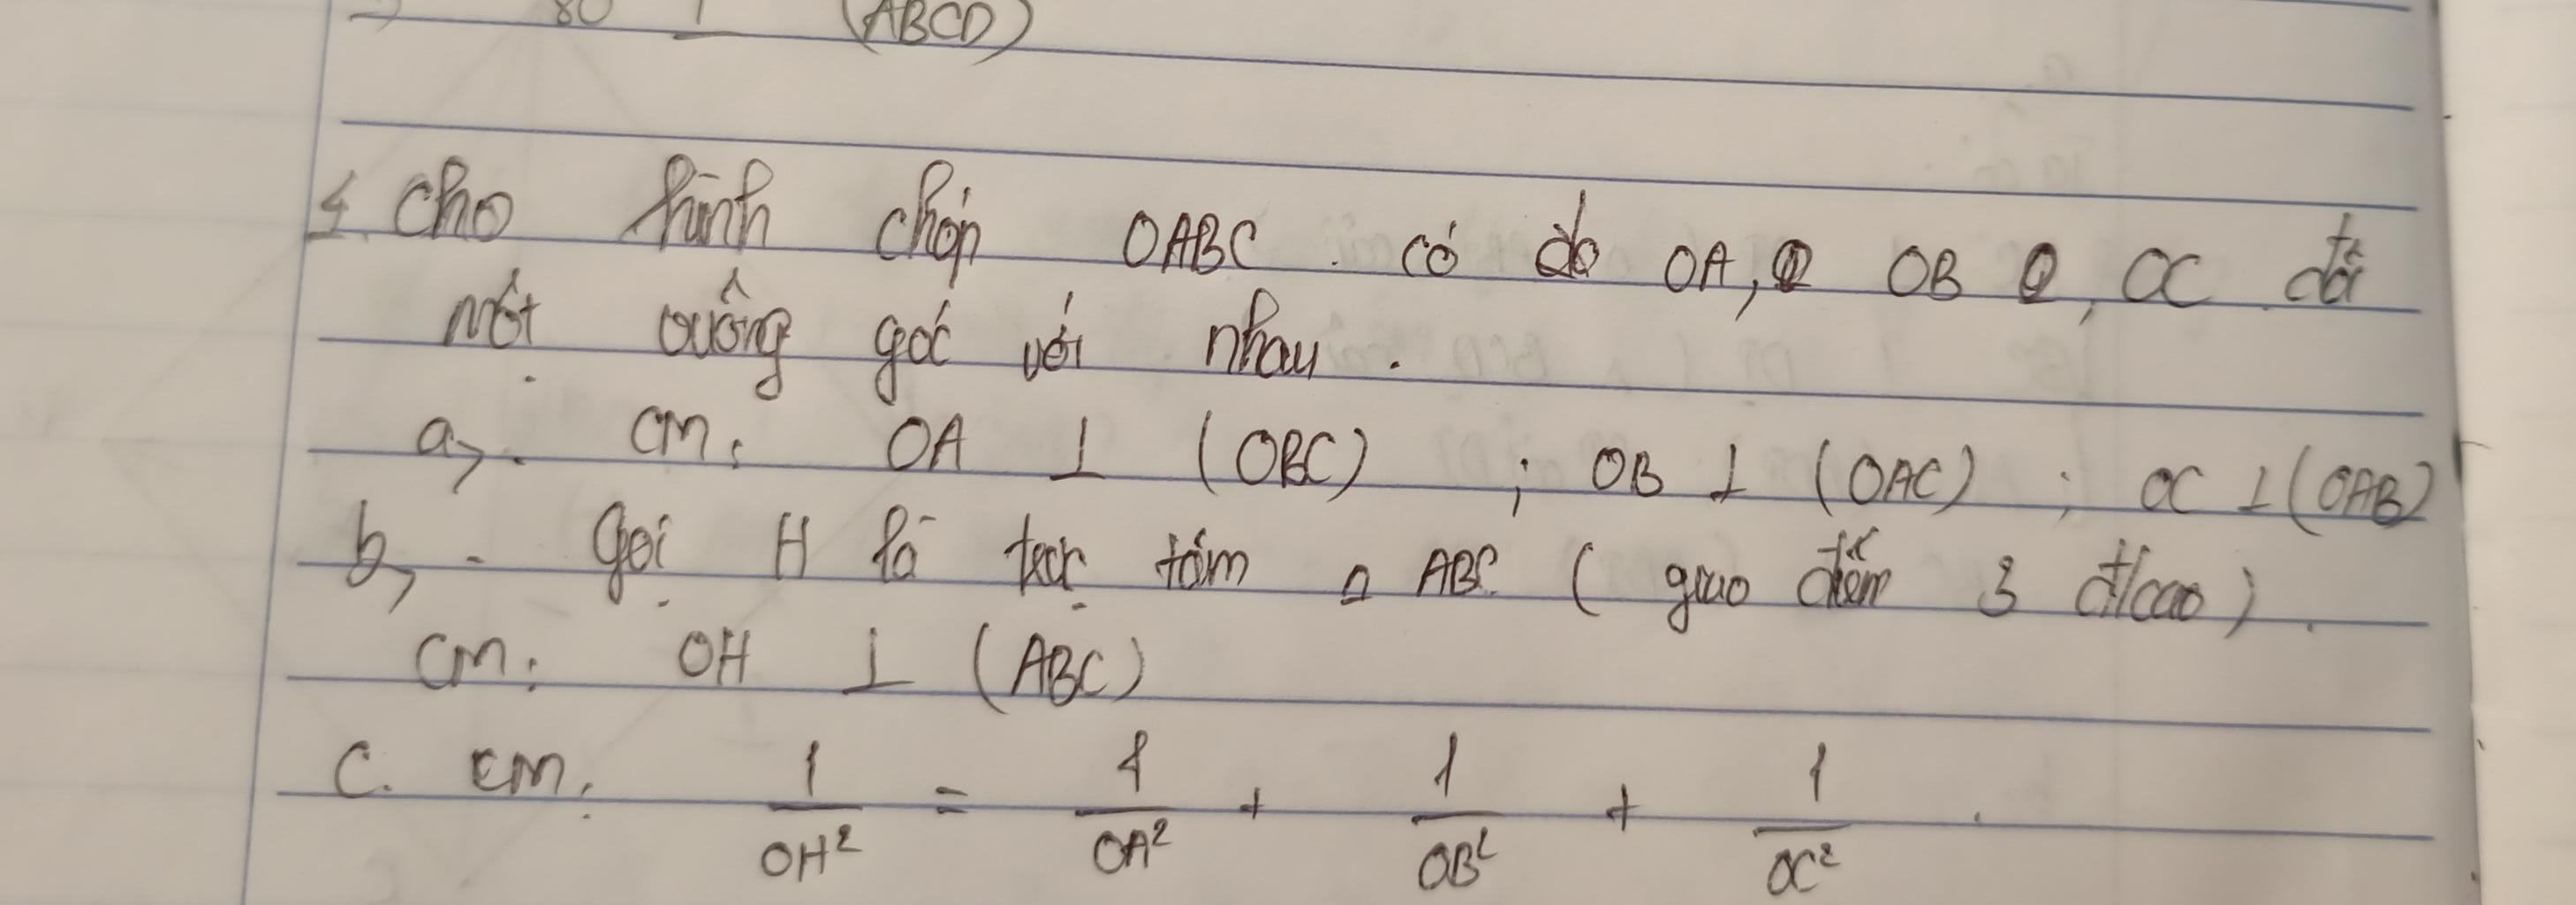 80 ⊥ (ABCD)
1. Cho hình chóp OABC có do OA, OB, OC đôi
một vuông góc với nhau.
a, CM: OA ⊥ (OBC) ; OB ⊥ (OAC) ; OC ⊥ (OAB)
b, - Gọi H là trực tâm △ ABC ( giao điểm 3 đ/cao ).
CM: OH ⊥ (ABC)
C. CM: 1/OH² = 1/OA² + 1/OB² + 1/OC².